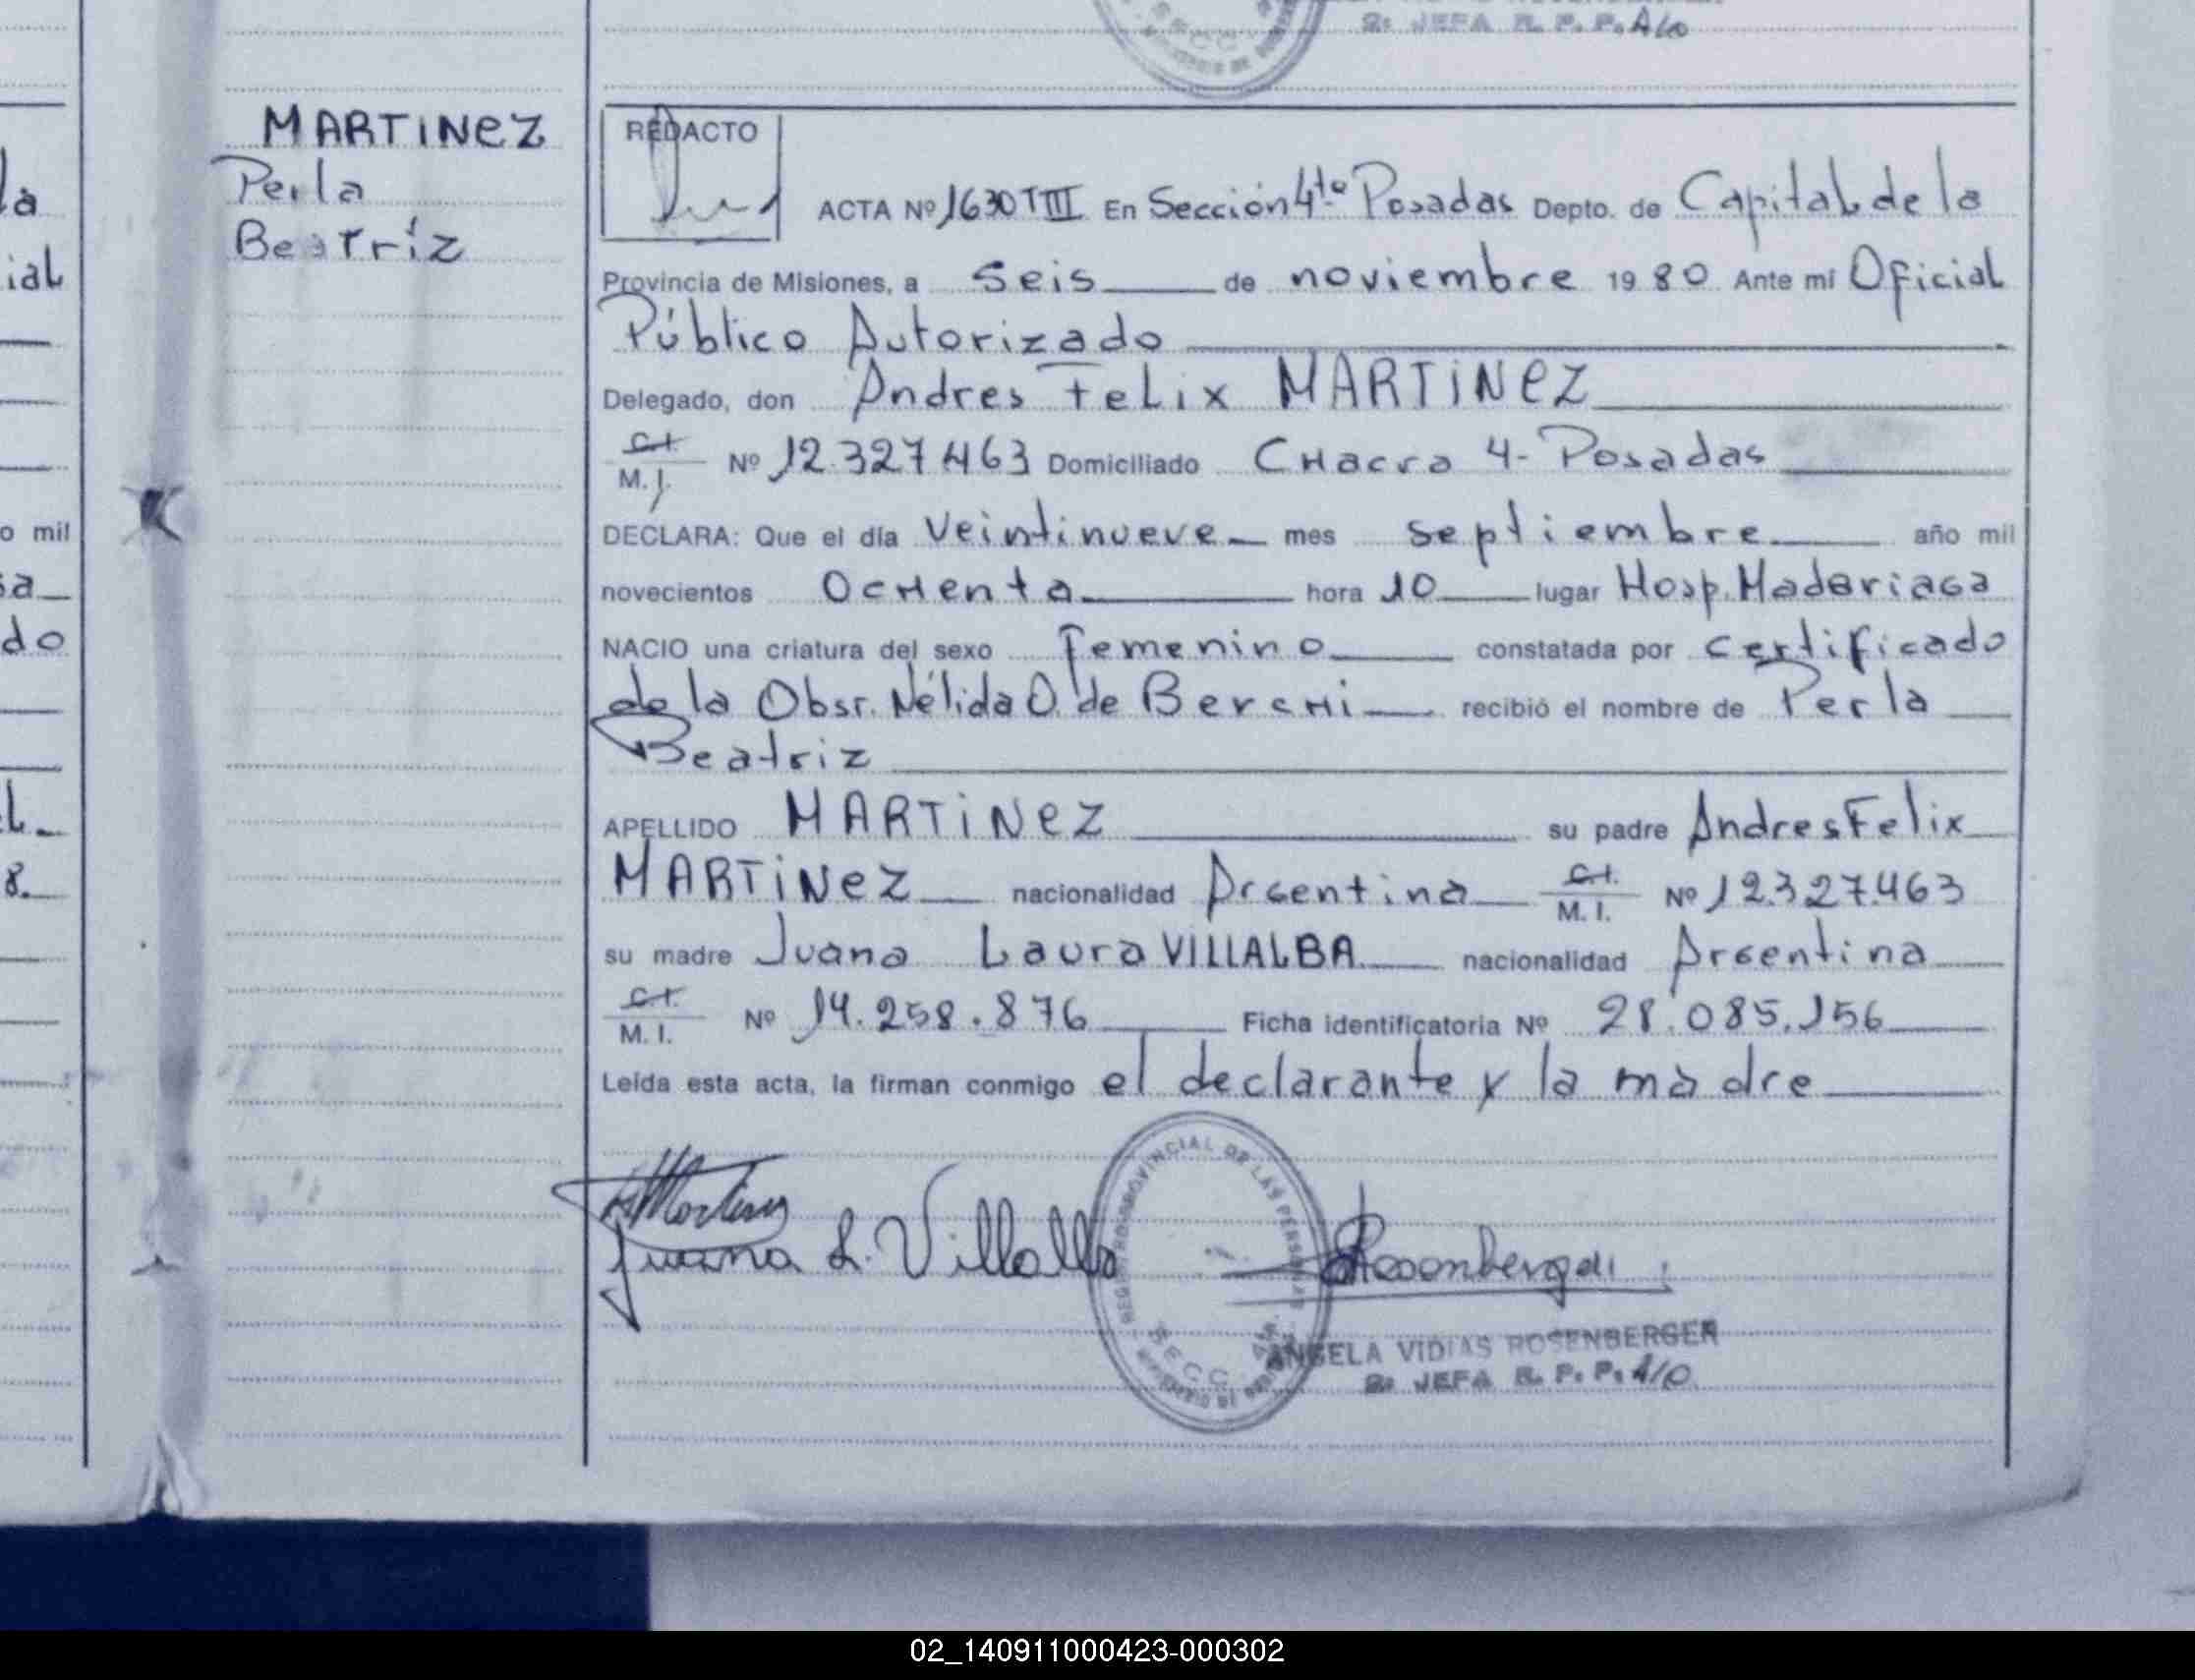 2º JEFA R. P. P. A/O
la
ial
o mil
sa
do
L
8.
MARTINEZ
Perla
Beatríz
REDACTO
ACTA Nº 1630 TIII En Sección 4ta Posadas Depto. de Capital de la
Provincia de Misiones, a seis de noviembre 1980 Ante mí Oficial
Público Autorizado
Delegado, don Andres Felix MARTINEZ
C.I.
M. I. Nº 12.327.463 Domiciliado Chacra 4 - Posadas
DECLARA: Que el día veintinueve mes septiembre año mil
novecientos ochenta hora 10 lugar Hosp. Madariaga
NACIO una criatura del sexo femenino constatada por certificado
de la Obst. Nélida O. de Berchi recibió el nombre de Perla
Beatriz
APELLIDO MARTINEZ su padre Andres Felix
MARTINEZ nacionalidad Argentina C.I.
M. I. Nº 12.327.463
su madre Juana Laura VILLALBA nacionalidad Argentina
C.I.
M. I. Nº 14.258.876 Ficha identificatoria Nº 28.085.156
Leída esta acta, la firman conmigo el declarante y la madre
Juana L. Villalba
REGISTRO PROVINCIAL DE LAS PERSONAS
SECC. 4ta.
ANGELA VIDIAS ROSENBERGER
2º JEFA R. P. P. A/O
02_140911000423-000302